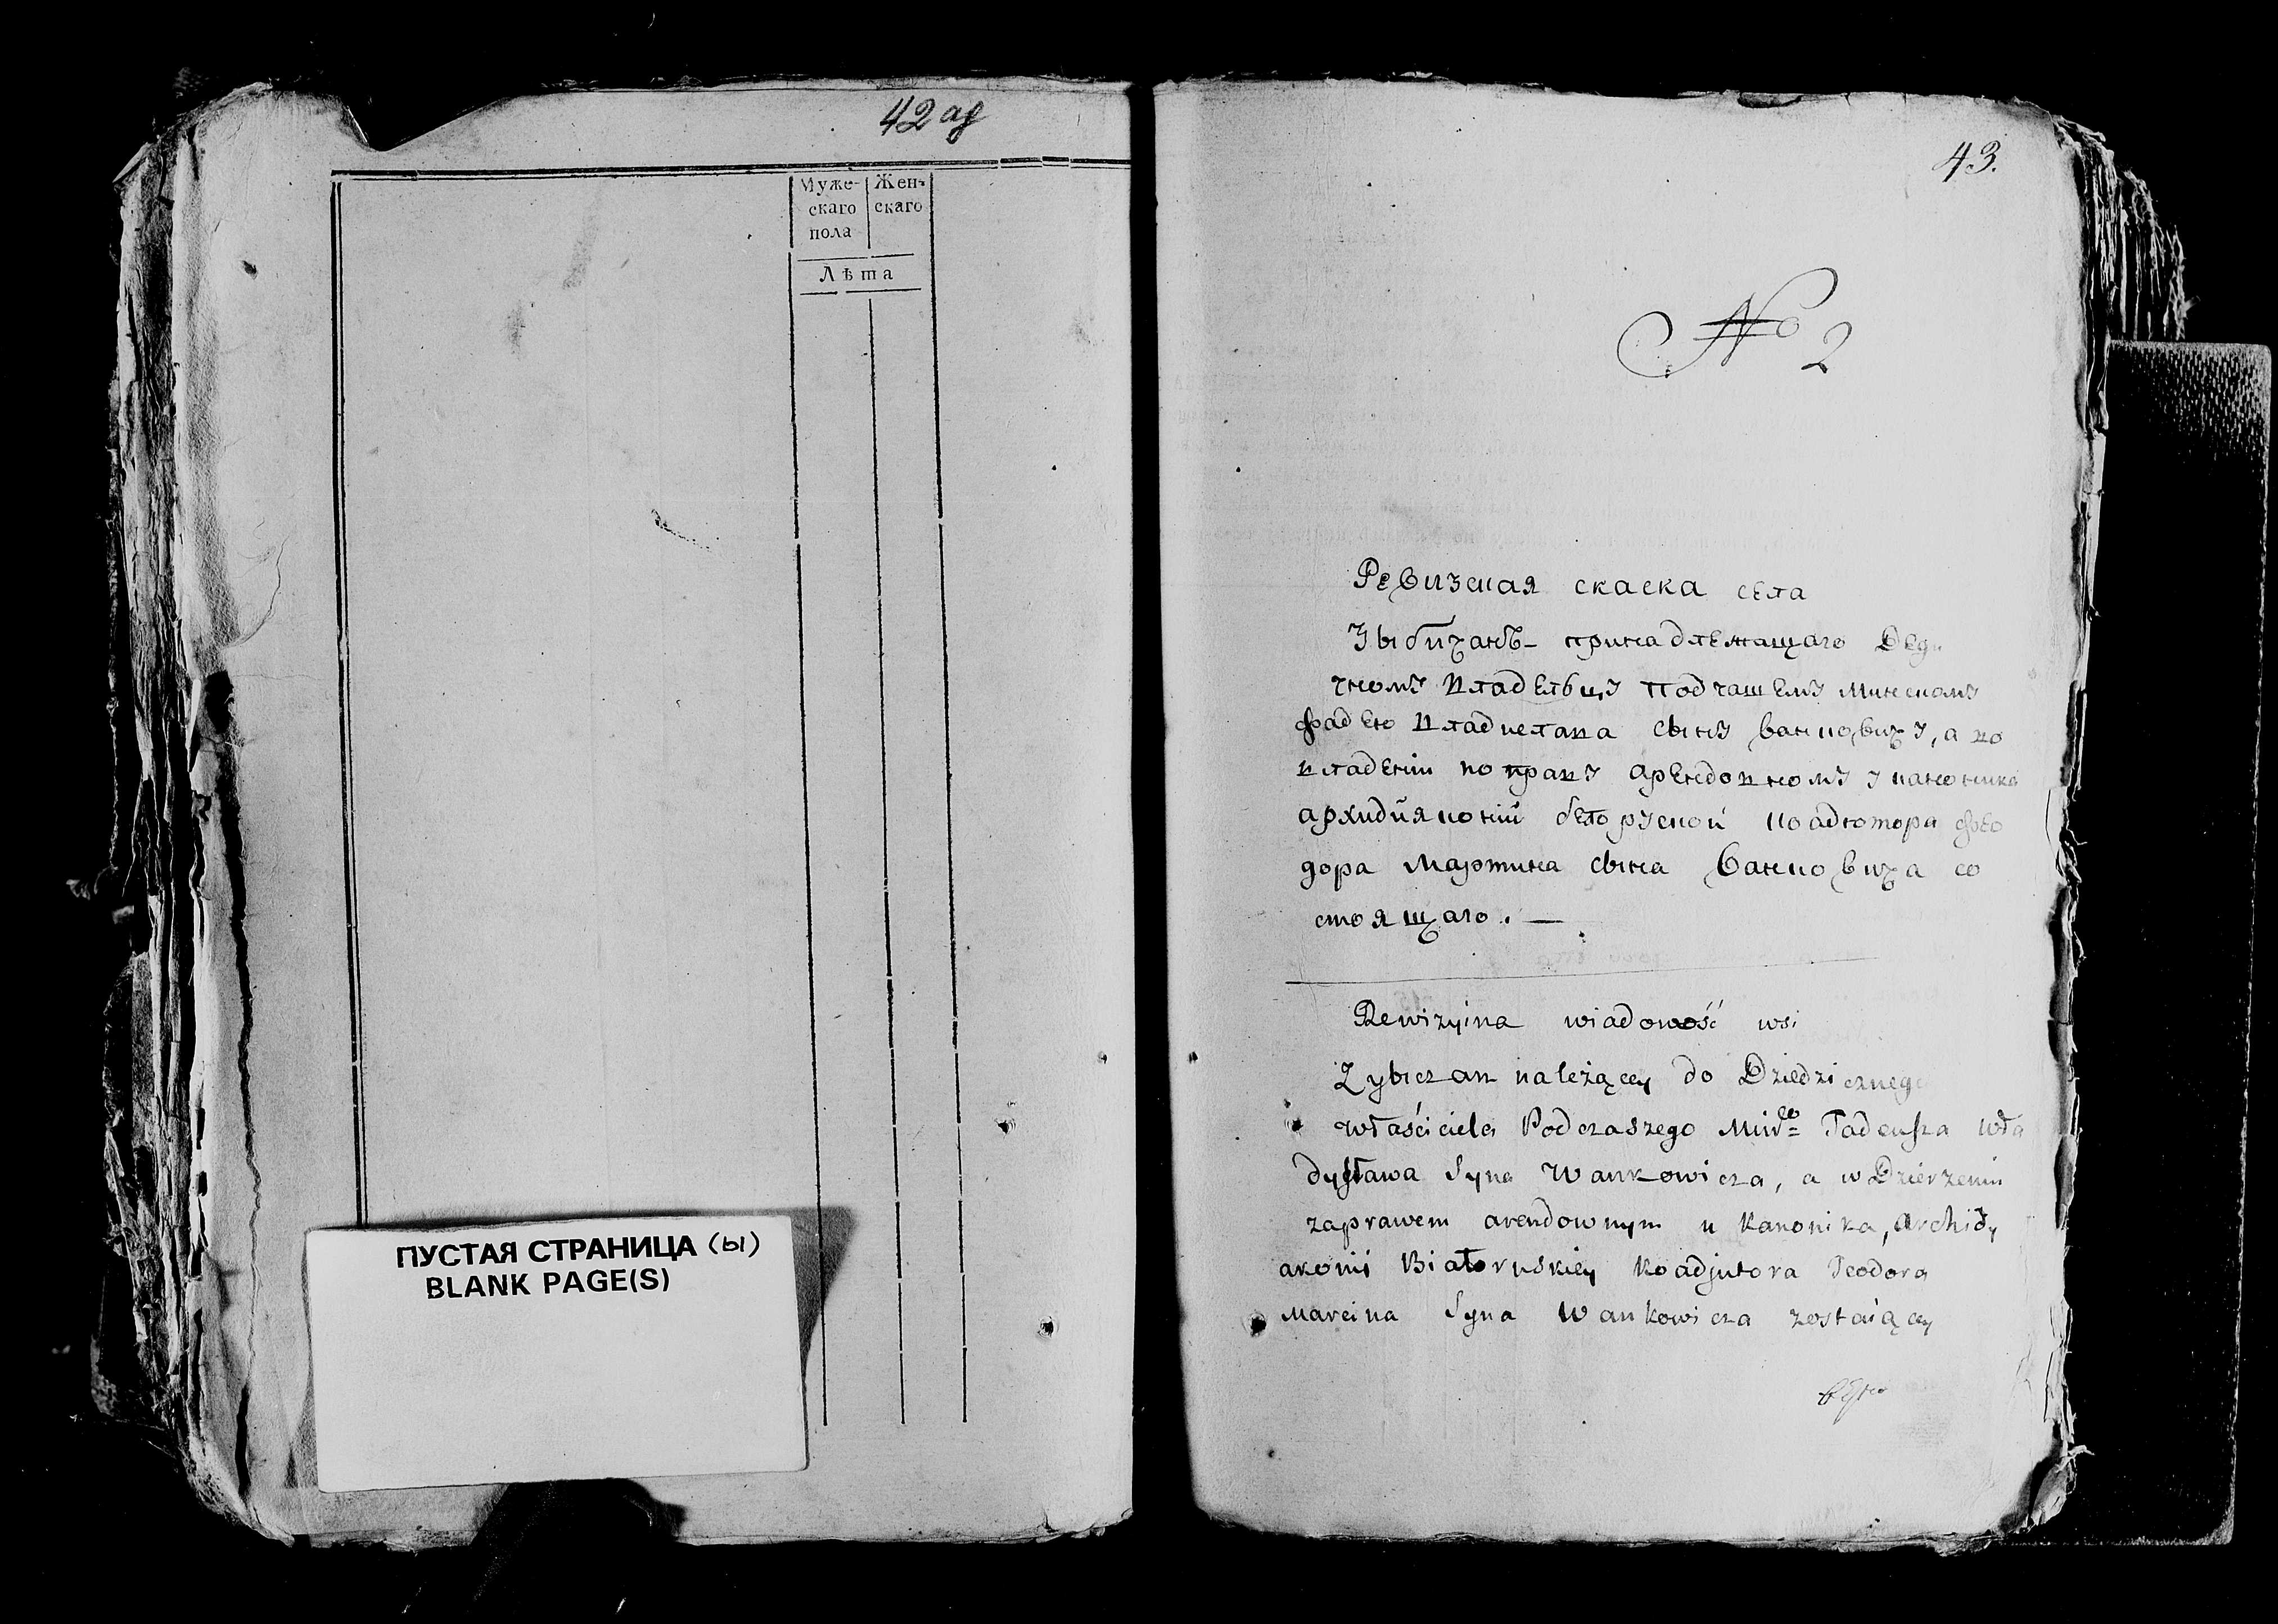 42 об
Муже- Жен-
скаго скаго
пола
Лѣта
ПУСТАЯ СТРАНИЦА (ы)
BLANK PAGE(S)
43.
№ 2
Ревизская скаска села
Зыбичанъ принадлежащаго
чному владельцу Подчашему минскому
фадею владислава сыну ванковичу, а во
владении по праву арендовному у каноника
архидияконии белоруской коадютора фео
дора Мартина сына Ванковича со
стоящаго. —
Rewizyina wiadomość wsi
Zybiczan należącey do Dziedzicznego
właściciela Podczaszego Mińgo Tadeusza Wła
dysława Syna Wankowicza, a w Dzierzeniu
za prawem arendownym u Kanonika, Archidy
akonii Białoruskiey Koadjutora Teodora
Marcina Syna Wankowicza zostaiącey